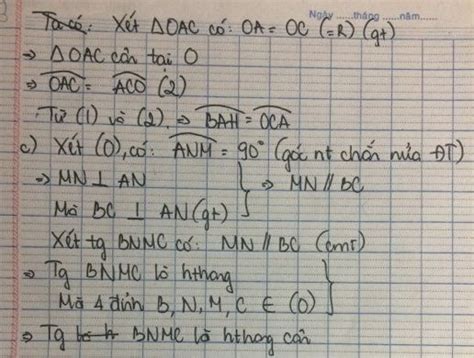 Ngày ......tháng ......năm......
Ta có: Xét ΔOAC có: OA = OC (=R) (gt)
⇒ ΔOAC cân tại O
⇒ OAC = ACO (2)
Từ (1) và (2) ⇒ BAH = OCA
c) Xét (O), có: ANM = 90° (góc nt chắn nửa ĐT)
⇒ MN ⊥ AN
Mà BC ⊥ AN (gt) } ⇒ MN // BC
Xét tg BNMC có: MN // BC (cmt)
⇒ Tg BNMC là hthang
Mà 4 đỉnh B, N, M, C ∈ (O) }
⇒ Tg BNMC là hthang cân